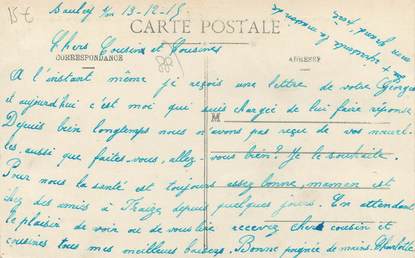 15€
13-12-15
CARTE POSTALE
Chers Cousin et Cousines
CORRESPONDANCE
ADRESSE
A l'instant même je reçois une lettre de votre Georges
et aujourd'hui c'est moi qui suis chargée de lui faire réponse
M
Depuis bein longtemps nous n'avons pas reçue de vos nouvel
les, aussi que faites-vous, allez-vous bien? Je le souhaite.
Pour nous la santé est toujours assez bonne, maman est
chez des amis à depuis quelques jours. En attendant
le plaisir de voir ou de vous lire recevez chers cousin et
cousines tous mes meilleurs baisers. Bonne poignée de mains. Charlotte